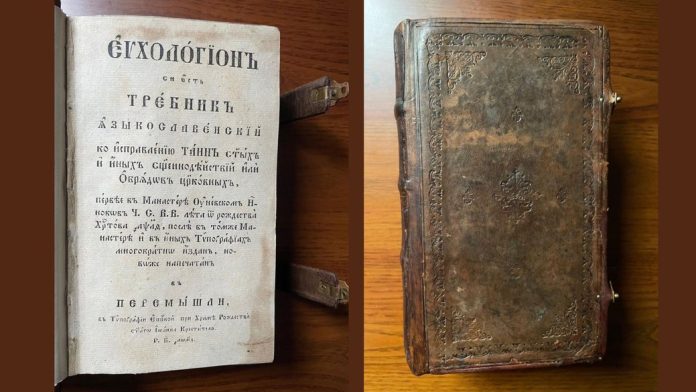 ЕѴХОЛО́ГІОНЪ
си є́сть
ТРЕ́БНИКЪ
Ꙗ҆ЗЫКОСЛАВЕ́НСКІЙ
ко исправле́нію ТА́ИНЪ СТ҃ЫХЪ
И҆ И҆́НЫХЪ СЩ҃ЕННОДѢ́ЙСТВІЙ И҆ЛИ
Ѻ҆БРѦ́ДѠВЪ ЦР҃КО́ВНЫХЪ,
пе́рвѣе въ Манастерѣ̀ Оуне́вскомъ І҆-
нокѡвъ Ч. С. В. В. лѣ́та ѿ рождества̀
Хр҃то́ва послѣ́ въ то́мже Ма-
настерѣ̀ и҆ въ и҆́ныхъ Тѷпогра́фїахъ
многокра́тнѡ и҆зда́нъ, но-
напеча́танъ
въ
ПЕРЕМЫ́ШЛИ,
въ Тѷпогра́фїи при Хра́мѣ Рождества̀
І҆ѡа́нна Крести́телѧ
Р. Б.